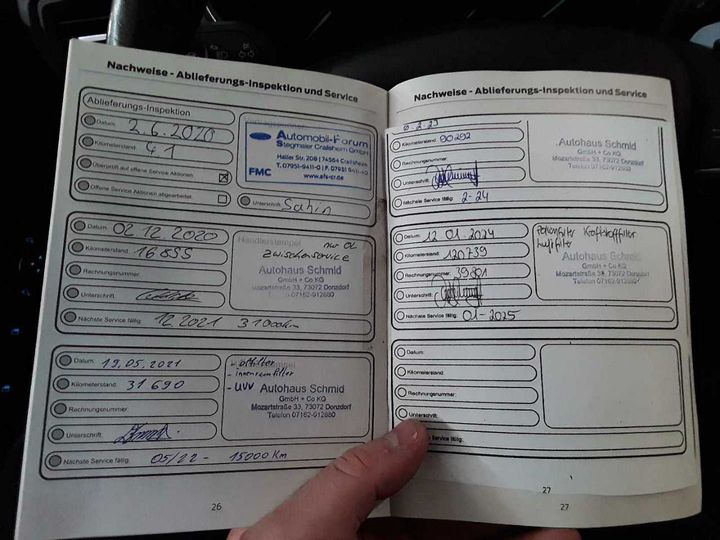 Nachweise - Ablieferungs-Inspektion und Service
Ablieferungs-Inspektion
Datum: 2.6.2020
Kilometerstand: 41
Überprüft auf offene Service Aktionen
Offene Service Aktionen abgearbeitet
Ford
Automobil-Forum
Stegmaier Crailsheim GmbH
Haller Str. 208 | 74564 Crailsheim
T. 07951-9411-0 | F. 07951 9411-40
FMC www.afs-cr.de
Unterschrift: Sahin
Datum: 02.12.2020
Kilometerstand: 16 855
Rechnungsnummer:
Unterschrift:
Nächste Service fällig: 12.2021 31000km
Händlerstempel
nur Öl
Zwischenservice
Autohaus Schmid
GmbH + Co KG
Mozartstraße 33, 73072 Donzdorf
Telefon 07162-912880
Datum: 19.05.2021
Kilometerstand: 31 690
Rechnungsnummer:
Unterschrift:
Nächste Service fällig: 05/22 - 15000 Km
- ölfilter
- innenraumfilter
- UVV
Autohaus Schmid
GmbH + Co KG
Mozartstraße 33, 73072 Donzdorf
Telefon 07162-912880
26
Nachweise - Ablieferungs-Inspektion und Service
Kilometerstand: 90292
Rechnungsnummer:
Unterschrift:
Nächste Service fällig: 2-24
Autohaus Schmid
GmbH + Co KG
Mozartstraße 33, 73072 Donzdorf
Telefon 07162-912880
Datum: 12 01.2024
Kilometerstand: 120739
Rechnungsnummer:
Unterschrift:
Nächste Service fällig: 01-2025
Pollenfilter Kraftstofffilter
Luftfilter
Autohaus Schmid
GmbH + Co KG
Mozartstraße 33, 73072 Donzdorf
Telefon 07162-912880
Datum:
Kilometerstand:
Rechnungsnummer:
Unterschrift:
Nächste Service fällig:
27
27